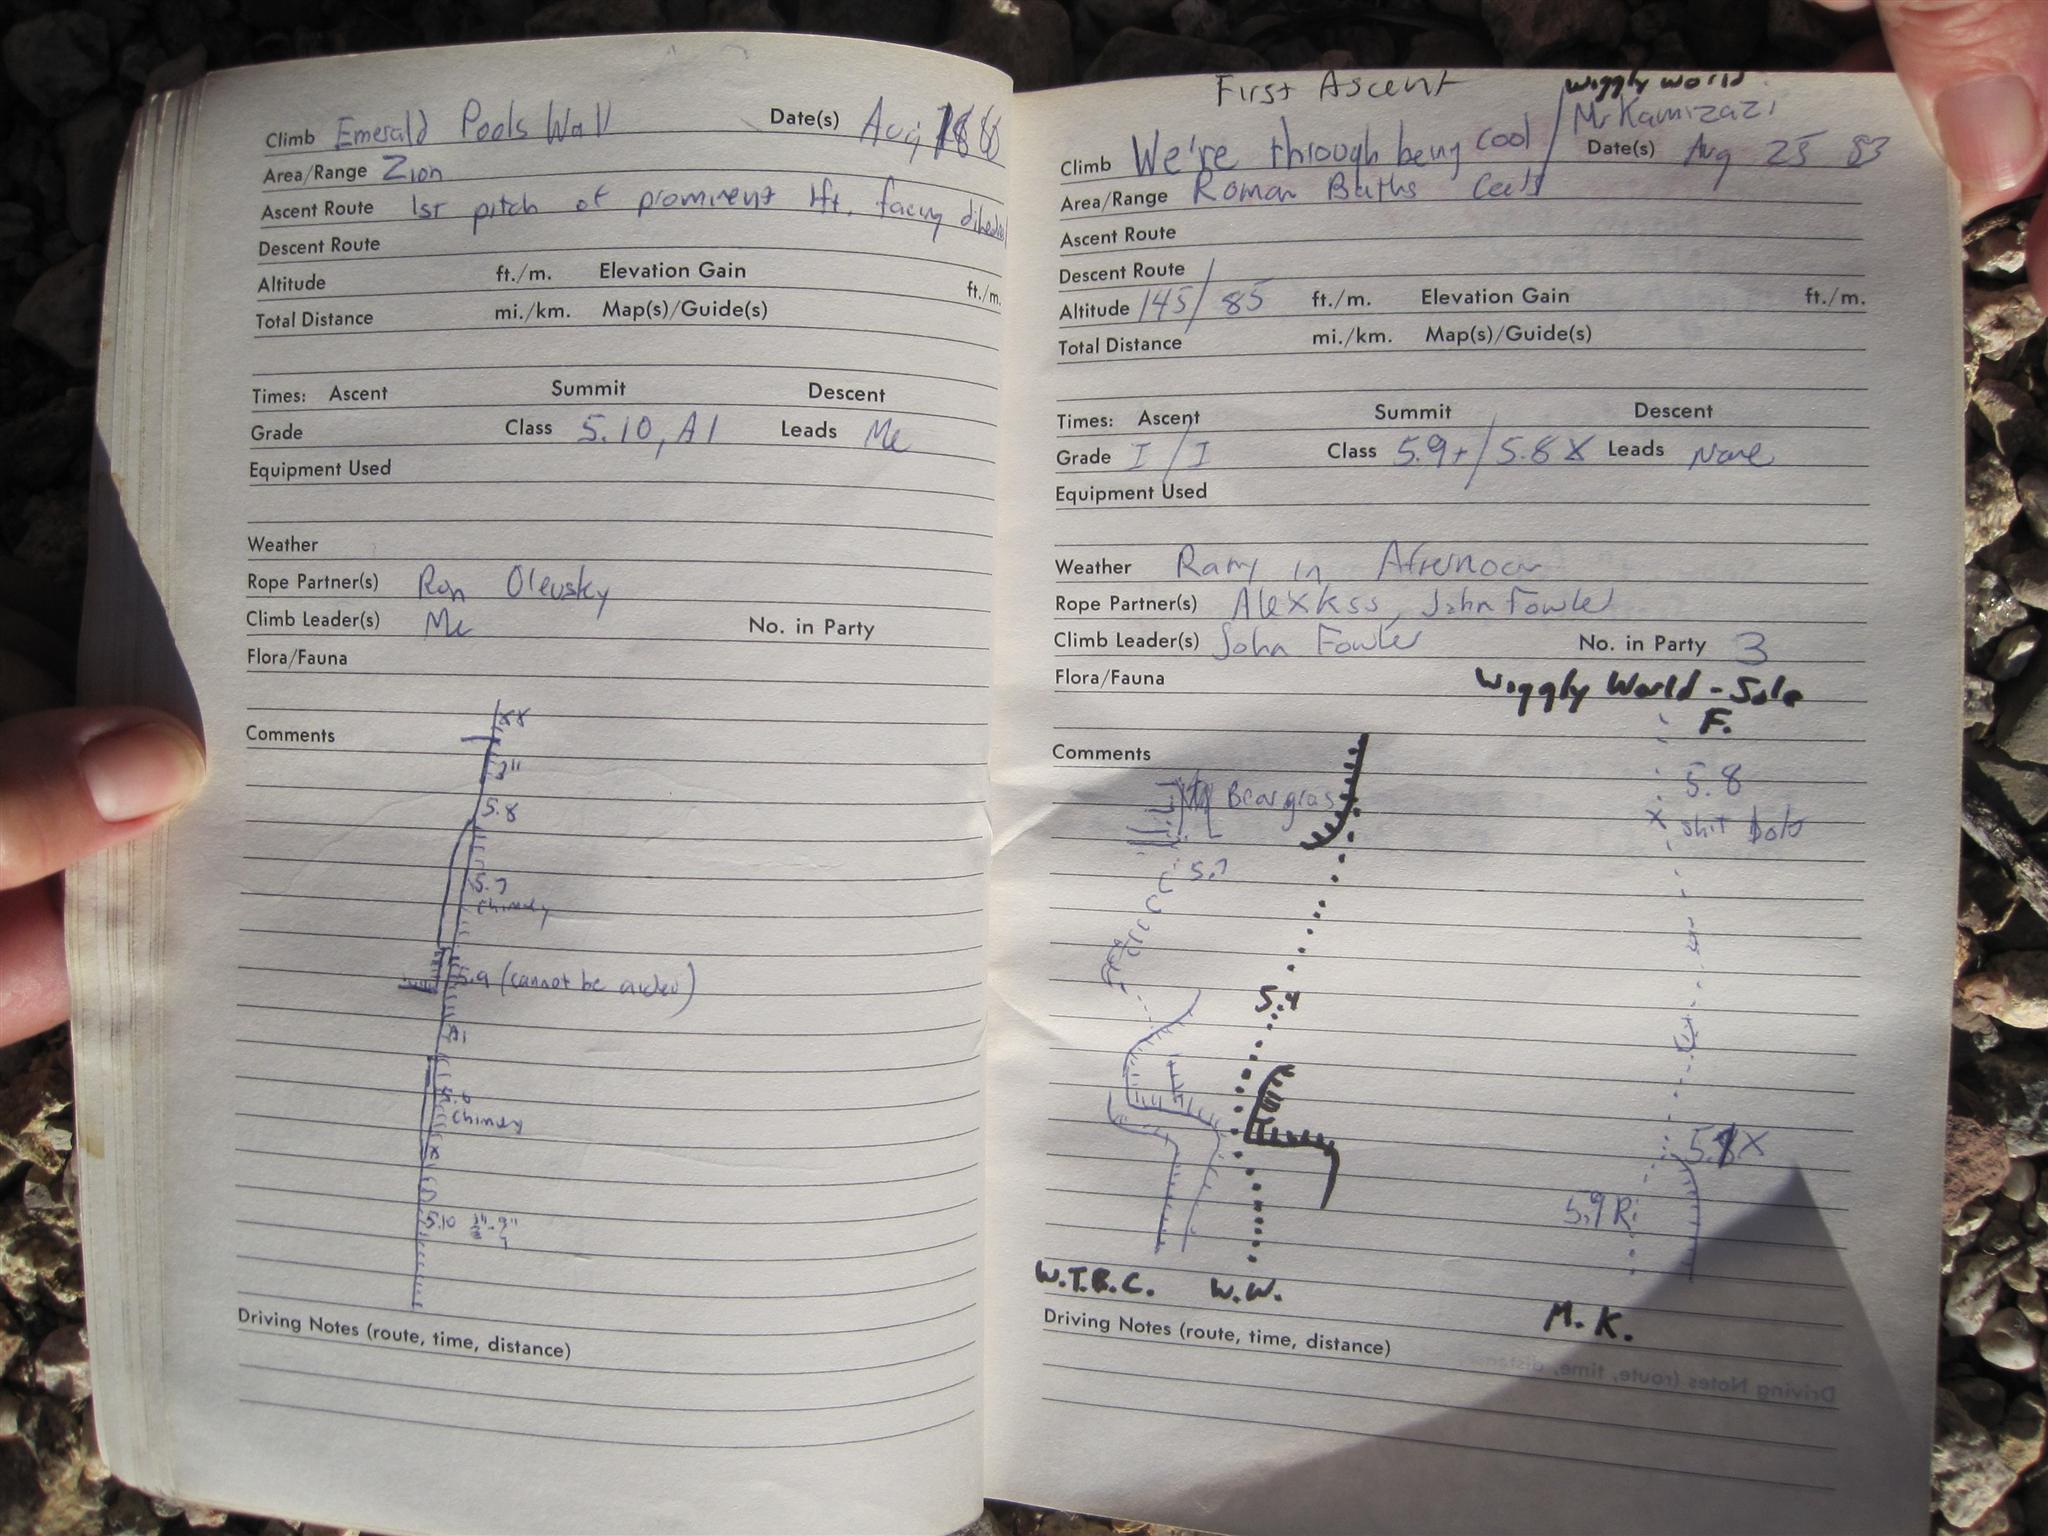 Climb Emerald Pools Wall Date(s) Aug
Area/Range Zion
Ascent Route 1st pitch of prominent lft. facing
Descent Route
Altitude ft./m. Elevation Gain ft./m.
Total Distance mi./km. Map(s)/Guide(s)
Times: Ascent Summit Descent
Grade Class 5.10, A1 Leads Me
Equipment Used
Weather
Rope Partner(s) Ron Olevsky
Climb Leader(s) Me No. in Party
Flora/Fauna
Comments
3"
5.8
5.7
Chimney
5.9 (cannot be aided)
A1
Chimney
5.10
Driving Notes (route, time, distance)
First Ascent Wiggly World
Climb We're through being cool / Mr Kamizazi
Date(s) Aug 25 83
Area/Range Roman Baths
Ascent Route
Descent Route
Altitude 145 / 85 ft./m. Elevation Gain ft./m.
Total Distance mi./km. Map(s)/Guide(s)
Times: Ascent Summit Descent
Grade I / I Class 5.9+ / 5.8 X Leads None
Equipment Used
Weather Rainy in Afternoon
Rope Partner(s) John Fowler
Climb Leader(s) John Fowler No. in Party 3
Flora/Fauna
Wiggly World - Solo
F.
Comments
Beargrass
5.8
X shit bolt
5.7
5.4
5.9 R
W.T.B.C. W.W. M.K.
Driving Notes (route, time, distance)